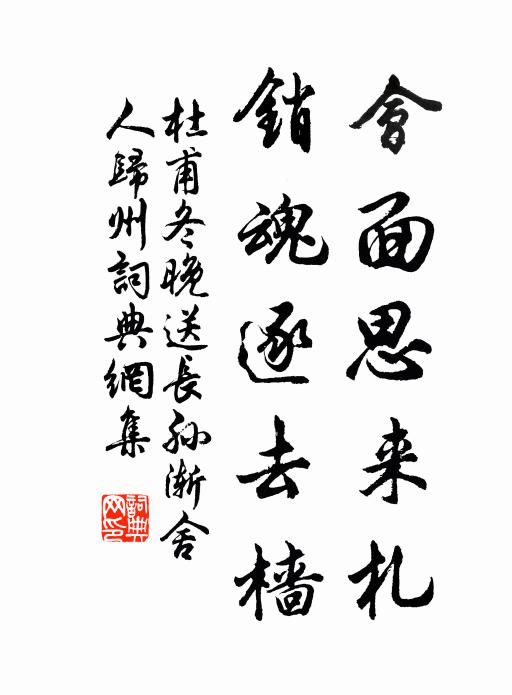 會面思来札
銷魂逐去檣
杜甫冬晚送長孫漸舍
人歸州詞典網集
詞典
网印